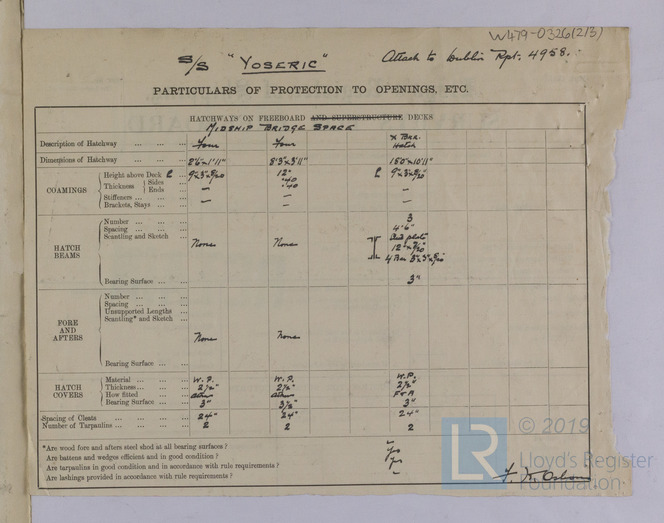 W479-0326(2/3)
S/S "YOSERIC"
Attach to Dublin Rpt. 4958.
PARTICULARS OF PROTECTION TO OPENINGS, ETC.
HATCHWAYS ON FREEBOARD AND SUPERSTRUCTURE DECKS
MIDSHIP BRIDGE SPACE
Description of Hatchway ... ... ... Four Four X Bkr. Hatch
Dimensions of Hatchway ... ... ... 2'6"x1'11" 8'3"x3'11" 18'0"x10'11"
COAMINGS
Height above Deck 12"
Thickness Sides ... .40
Ends ... .40
Stiffeners ... ... ... – – –
Brackets, Stays ... ... – –
HATCH BEAMS
Number ... ... ... 3
Spacing ... ... ... 4'6"
Scantling and Sketch ... None None
Bearing Surface ... ... 3"
FORE AND AFTERS
Number ... ... ...
Spacing ... ... ...
Unsupported Lengths ...
Scantling* and Sketch ...
None None
Bearing Surface ... ...
HATCH COVERS
Material ... ... ... W.P. W.P. W.P.
Thickness ... ... ... 2½" 2½" 2½"
How fitted ... ... F & A
Bearing Surface ... ... 3" 3½" 3"
Spacing of Cleats ... ... ... ... 24" 24" 24"
Number of Tarpaulins ... ... ... 2 2 2
*Are wood fore and afters steel shod at all bearing surfaces? –
Are battens and wedges efficient and in good condition? Yes
Are tarpaulins in good condition and in accordance with rule requirements? Yes
Are lashings provided in accordance with rule requirements? –
© 2019
LR
Lloyd's Register
Foundation